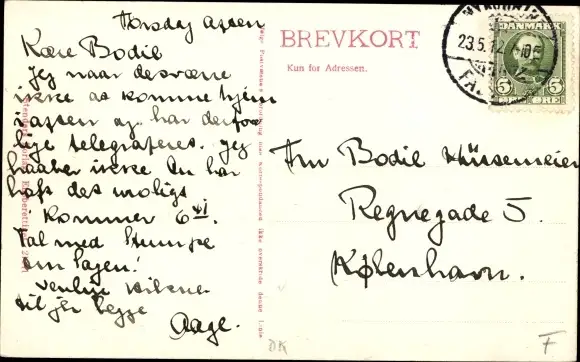 Torsdag aften
Kære Bodil
Jeg naar desværre
ikke at komme hjem
i aften og har derfor
lige telegraferet. Jeg
haaber ikke Du har
haft det uroligt
kommer
Tal med Stumpe
om Sagen!
venlig hilsen
til jer begge
Aage.
BREVKORT
Kun for Adressen.
DANMARK
5 5
ØRE
23.5.12
Fru Bodil
Regnegade 5.
København.
DK
F